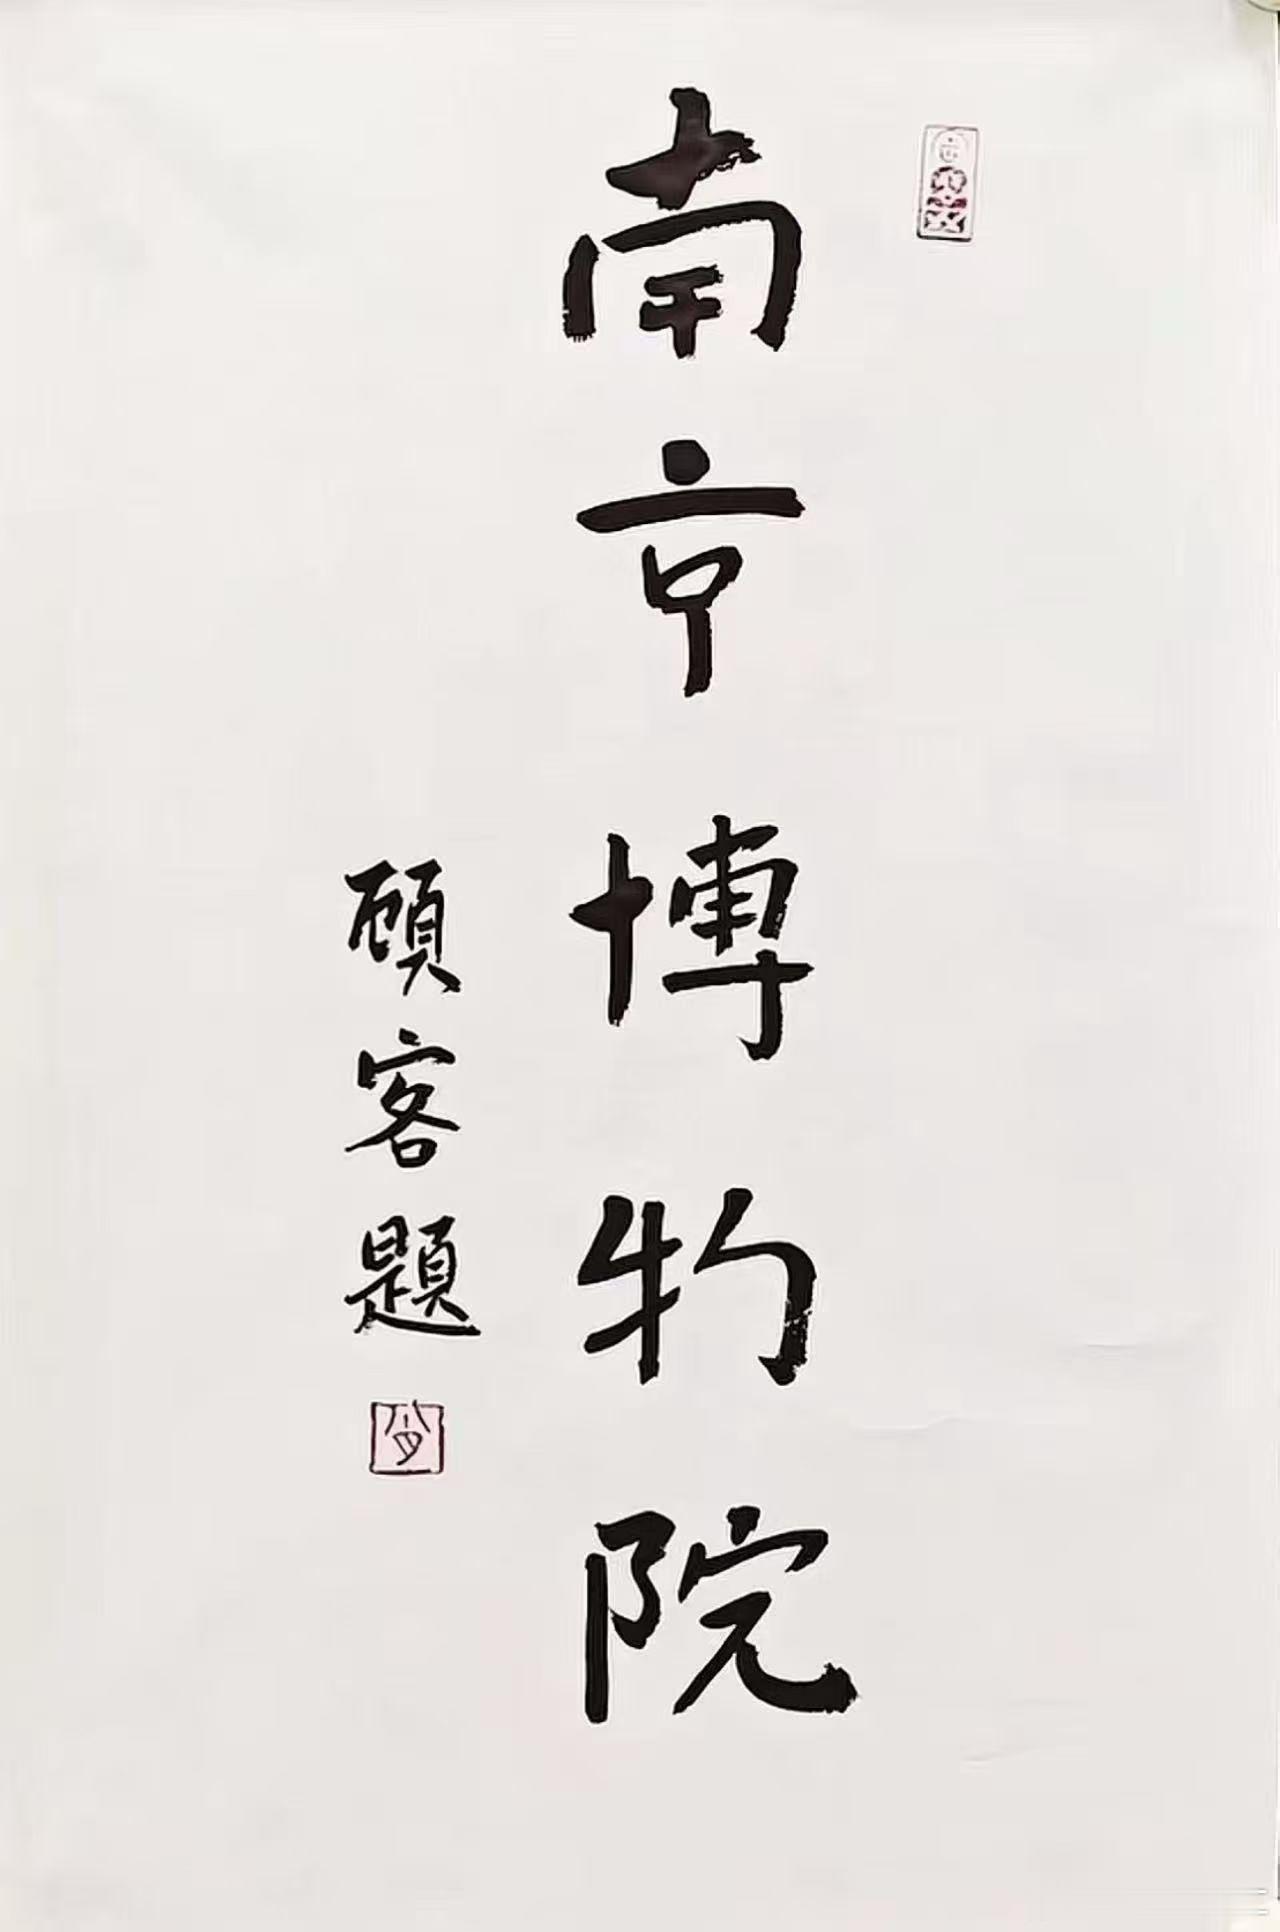 南京博物院
顧客題